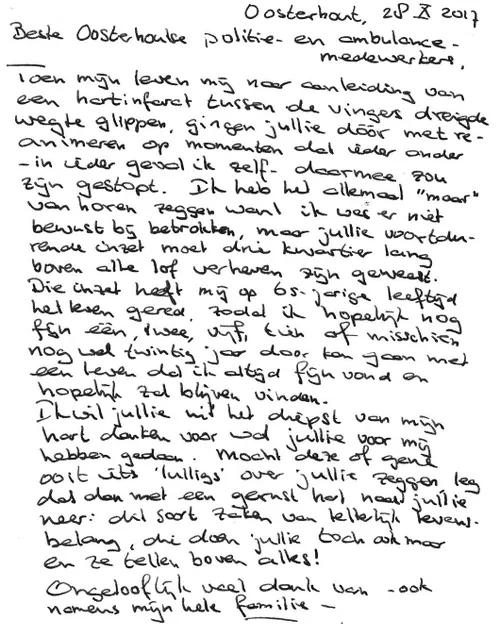 Oosterhout, 28 X 2017
Beste Oosterhoutse politie- en ambulance-
medewerkers,
Toen mijn leven mij naar aanleiding van
een hartinfarct tussen de vingers dreigde
weg te glippen, gingen jullie dóór met re-
animeren op momenten dat ieder ander
-in ieder geval ik zelf- daarmee zou
zijn gestopt. Ik heb het allemaal "maar"
van horen zeggen want ik was er niet
bewust bij betrokken, maar jullie voortdu-
rende inzet moet drie kwartier lang
boven alle lof verheven zijn geweest.
Die inzet heeft mij op 65-jarige leeftijd
het leven gered, zodat ik hopelijk nog
fijn één, twee, vijf, tien of misschien
nog wel twintig jaar door kan gaan met
een leven dat ik altijd fijn vond en
hopelijk zal blijven vinden.
Ik wil jullie uit het diepst van mijn
hart danken voor wat jullie voor mij
hebben gedaan. Mocht deze of gene
ooit iets 'lulligs' over jullie zeggen leg
dat dan met een gerust hart naast jullie
neer: dit soort zaken van letterlijk levens-
belang, die doen jullie toch ook maar
en ze tellen boven alles!
Ongelooflijk veel dank van -ook
namens mijn hele familie-